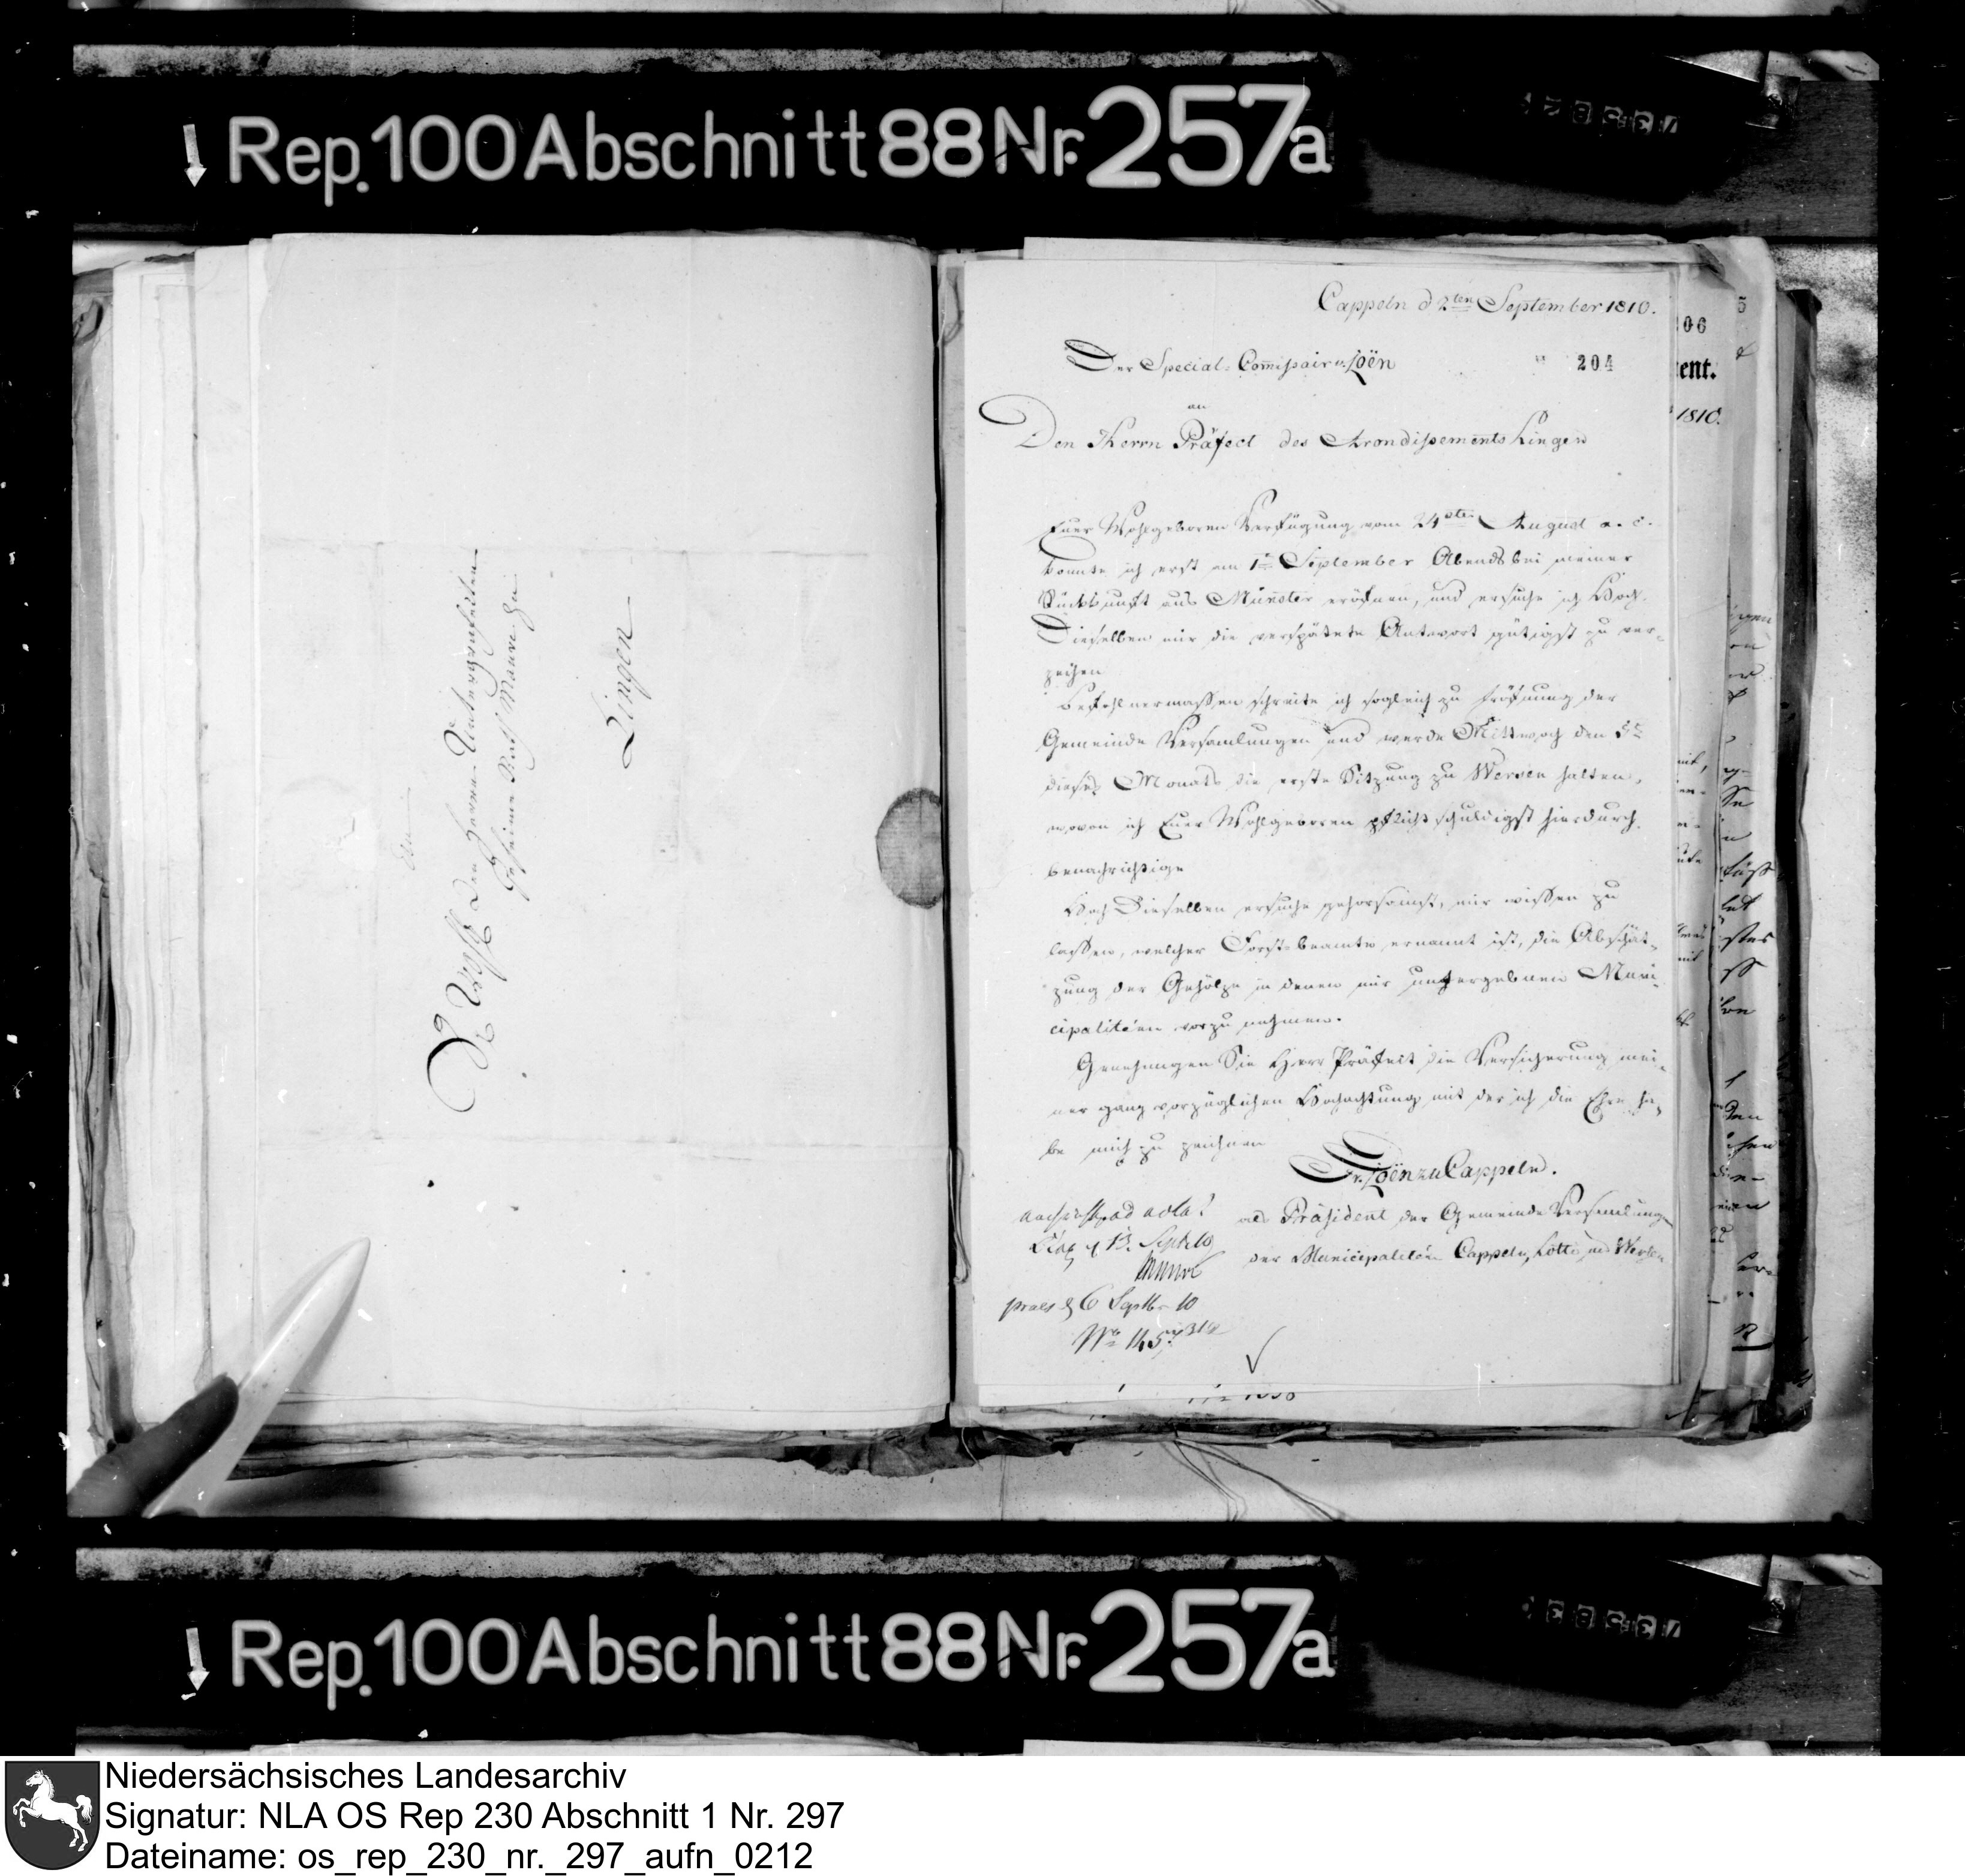 Rep. 100 Abschnitt 88 Nr. 257a
Den Herren Unterpräfecten
Geheime Rath Mauve zu
Lingen
Cappeln d 2ten September 1810.
Der Special-Com̄issair v. Loën
204
an
Den Herrn Präfect des Arondissements Lingen
Euer Wohlgeboren Verfügung vom 24sten August a. c.
konnte ich erst am 1t September Abends bei meiner
Rückkunft aus Münster eröfnen, und ersuche ich Hoch-
Dieselben mir die verspätete Antwort gütigst zu ver-
zeihen
Befohlnermassen schreite ich sogleich zu Eröfnung der
Gemeinde Versamlungen und werde Mittwoch den 5t
dieses Monats die erste Sitzung zu Wersen halten,
wovon ich Euer Wohlgeboren pflichtschuldigst hierdurch
benachrichtige
HochDieselben ersuche gehorsamst, mir wissen zu
lassen, welcher Forstbeamte ernannt ist, die Abschät-
zung der Gehölze in denen mir untergebnen Muni-
cipalitäen vorzunehmen.
Genehmigen Sie Herr Präfect die Versicherung mei-
ner ganz vorzüglichen Hochachtung mit der ich die Ehre ha-
be mich zu zeichnen
Fr. v. Loën zu Cappeln.
als Präsident der Gemeinde Versamlung
der Municipalitäen Cappeln, Lotte und Wersen
ad acta
Sept 10
Mauve
praes d 6 Septbr 10
Rep. 100 Abschnitt 88 Nr. 257a
Niedersächsisches Landesarchiv
Signatur: NLA OS Rep 230 Abschnitt 1 Nr. 297
Dateiname: os_rep_230_nr._297_aufn_0212